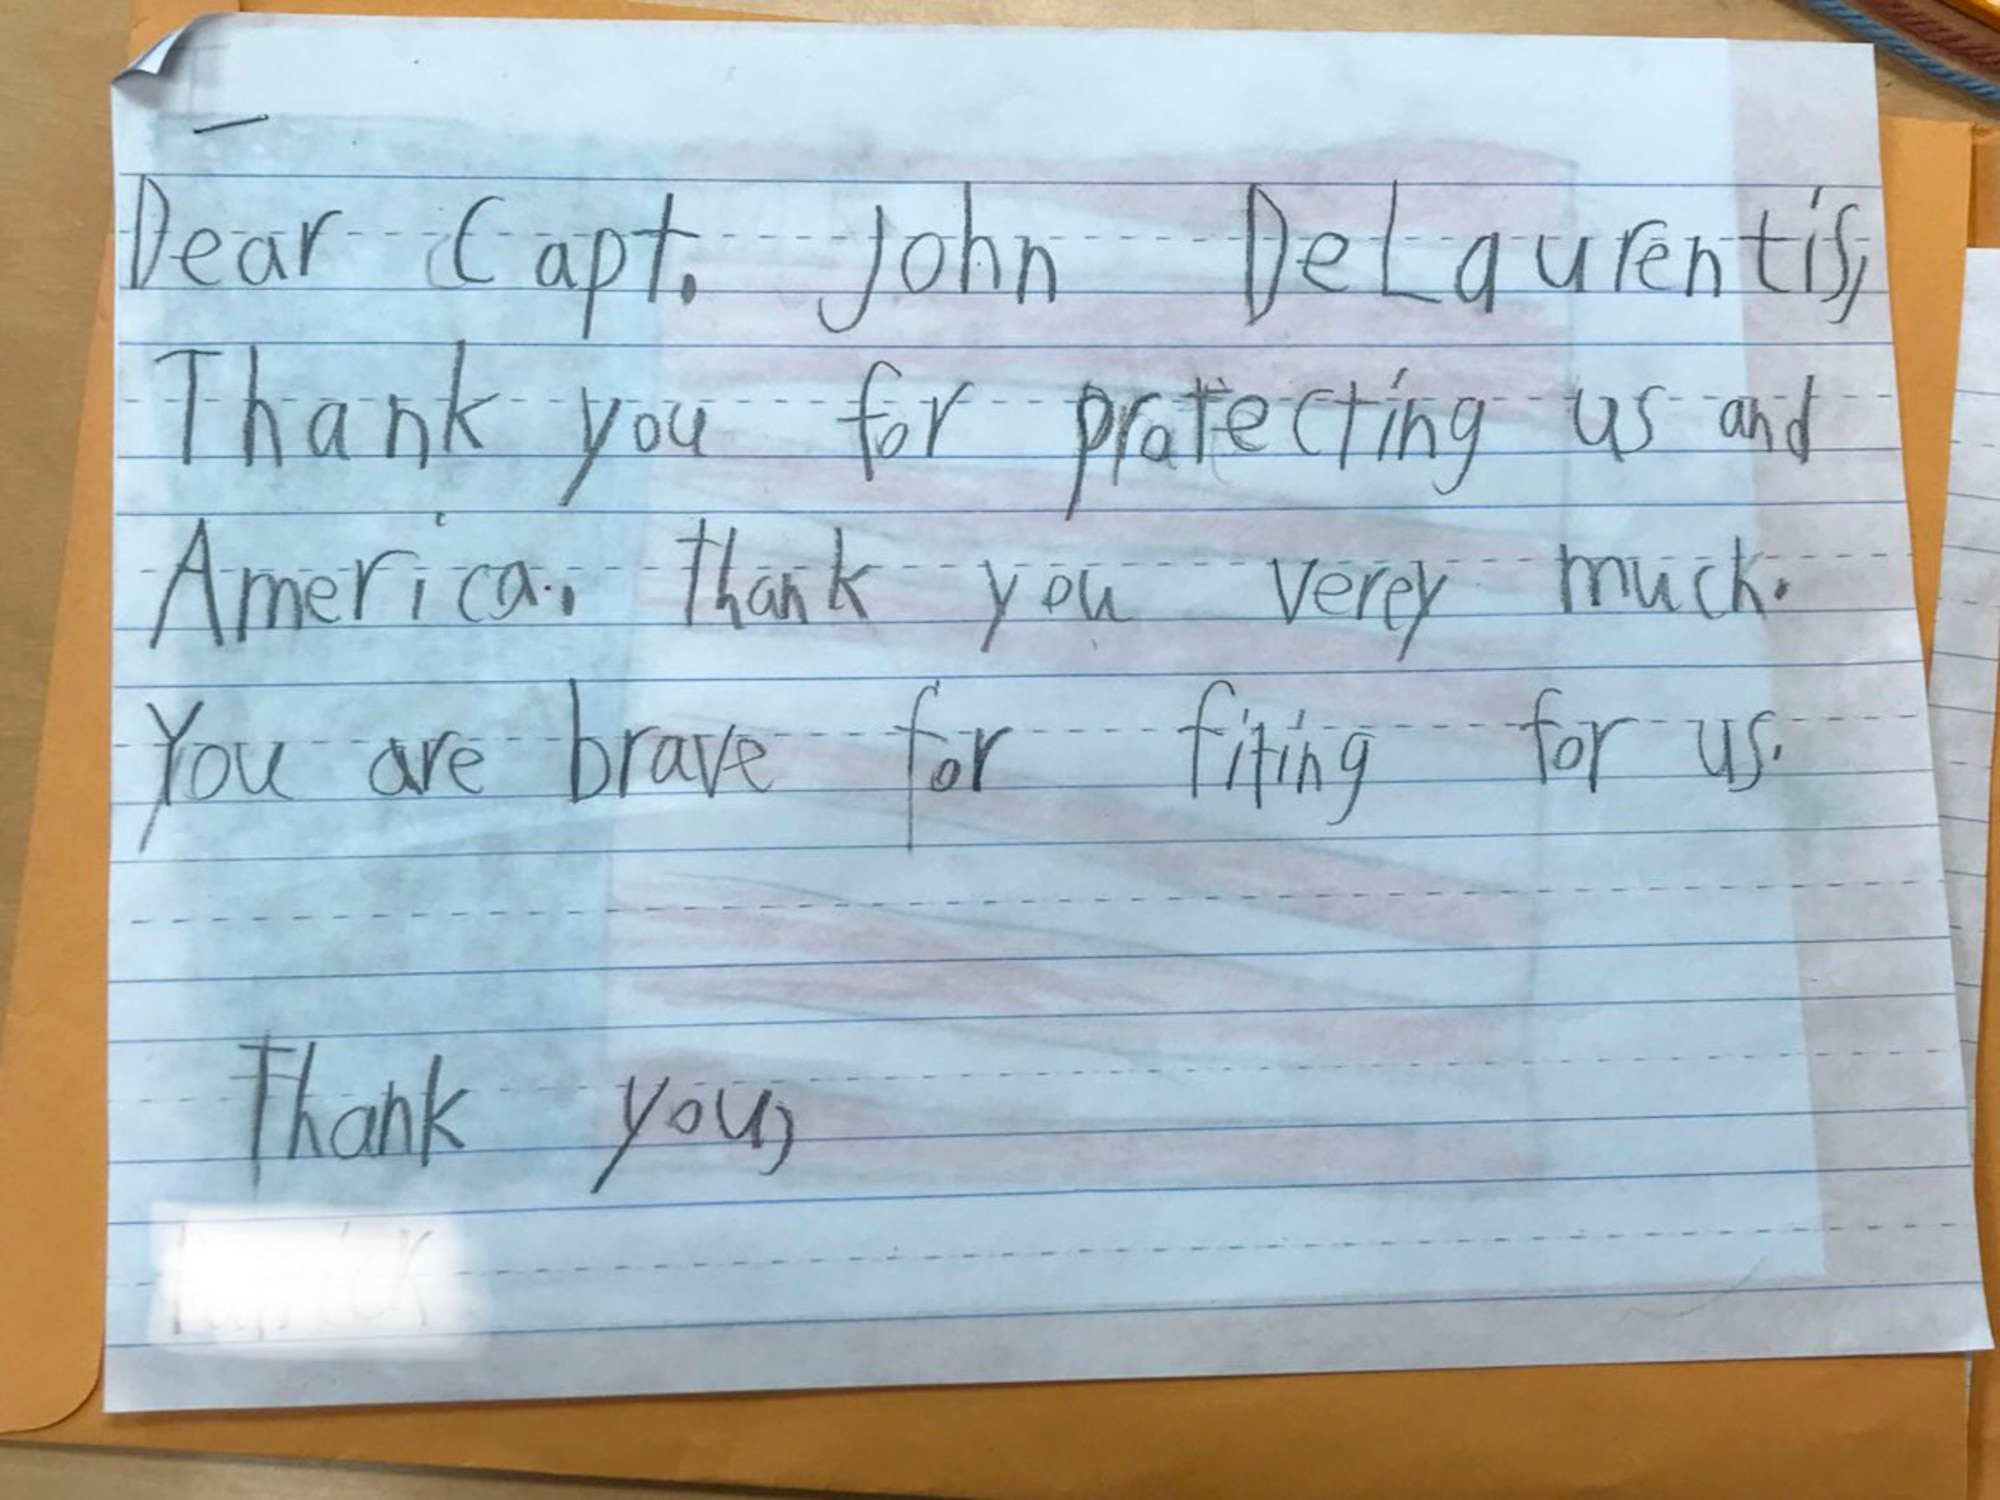 Dear Capt. John DeLaurentis,
Thank you for protecting us and
America. Thank you verey muck.
You are brave for fiting for us.
Thank you,